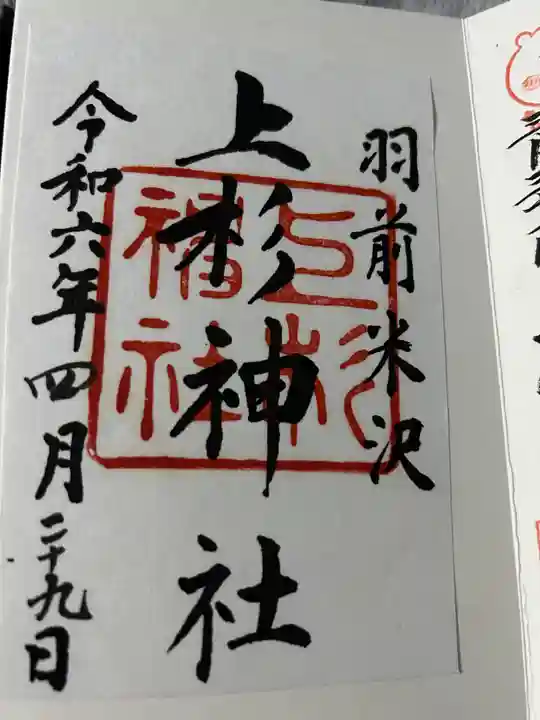 羽前米沢
上杉神社
令和六年四月二十九日
上杉神社